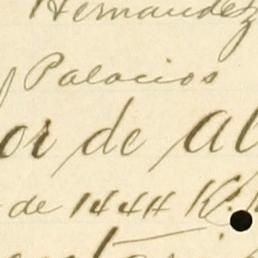 Hernandez
y Palacios
or de al
de 1444 K.